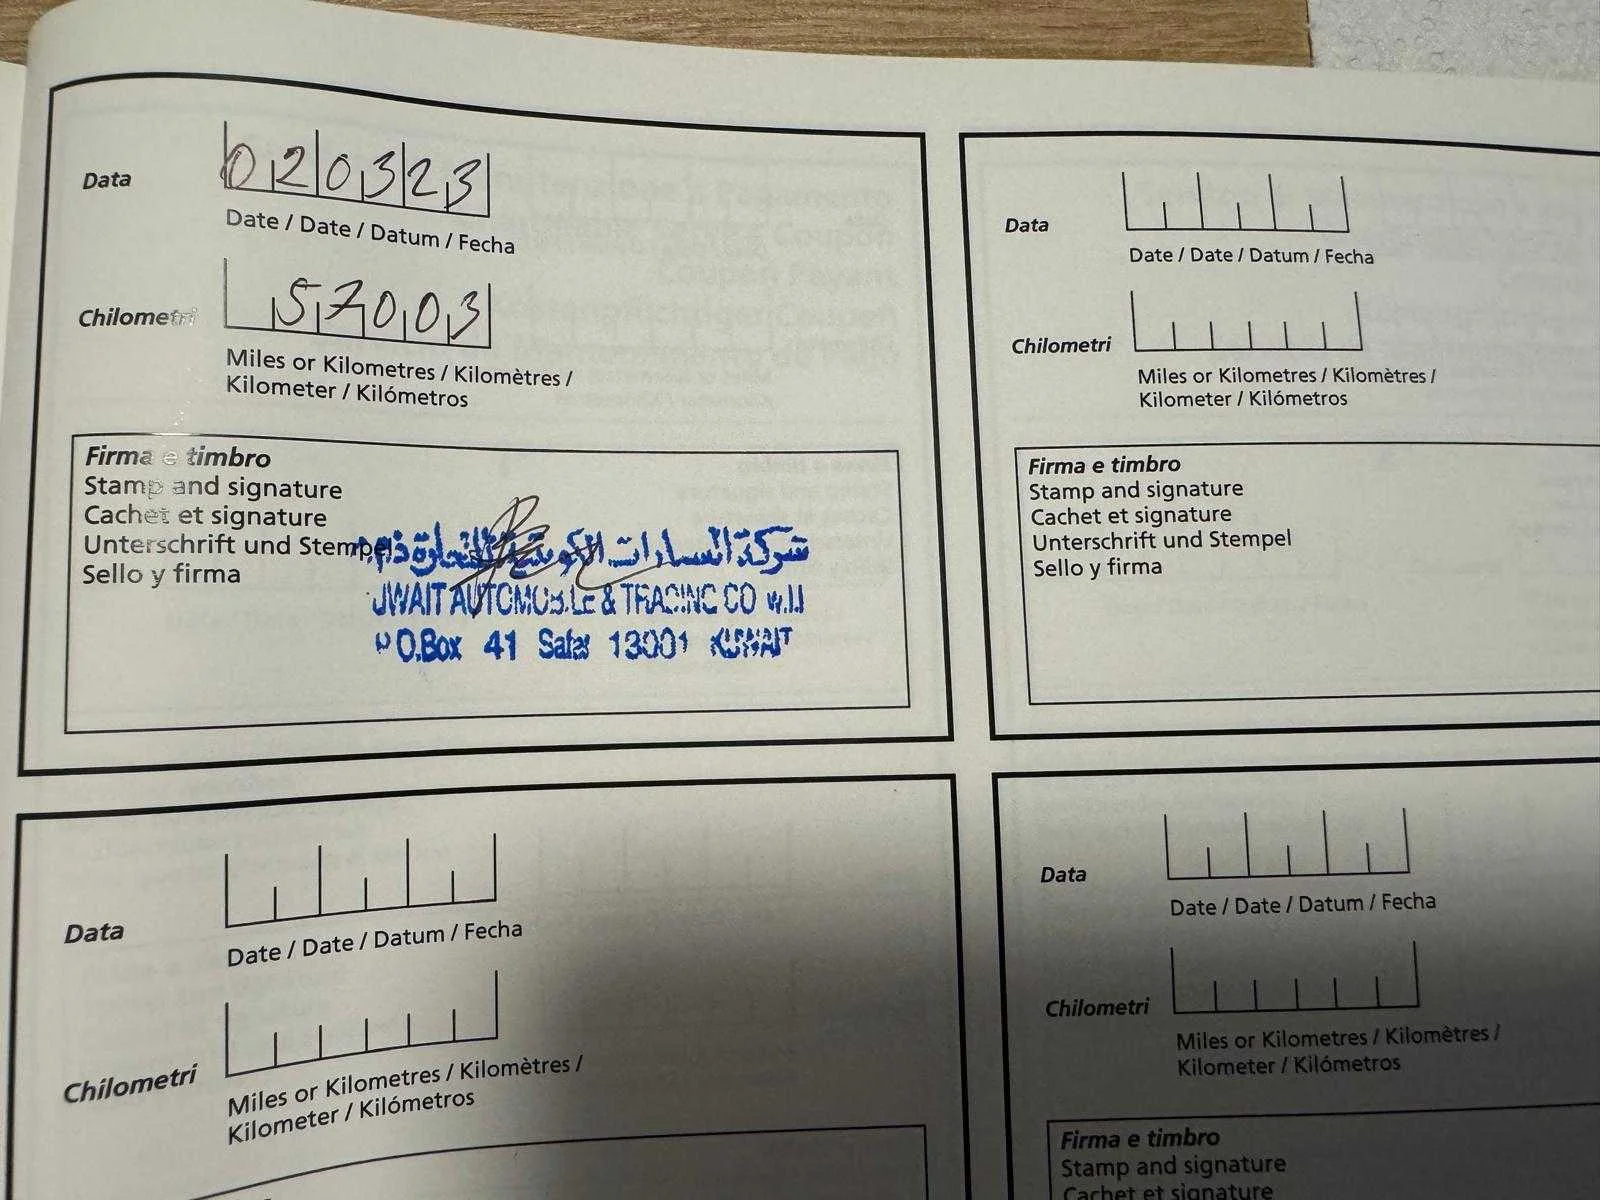 Data
020323
Date / Date / Datum / Fecha
Chilometri
57003
Miles or Kilometres / Kilomètres /
Kilometer / Kilómetros
Firma e timbro
Stamp and signature
Cachet et signature
Unterschrift und Stempel
Sello y firma
شركة السيارات الكويتية التجارة ذ.م.م
UWAIT AUTOMOBILE & TRADING CO w.l.l
P.O.Box 41 Safat 13001 KUWAIT
Data
Date / Date / Datum / Fecha
Chilometri
Miles or Kilometres / Kilomètres /
Kilometer / Kilómetros
Firma e timbro
Stamp and signature
Cachet et signature
Unterschrift und Stempel
Sello y firma
Data
Date / Date / Datum / Fecha
Chilometri
Miles or Kilometres / Kilomètres /
Kilometer / Kilómetros
Data
Date / Date / Datum / Fecha
Chilometri
Miles or Kilometres / Kilomètres /
Kilometer / Kilómetros
Firma e timbro
Stamp and signature
Cachet et signature